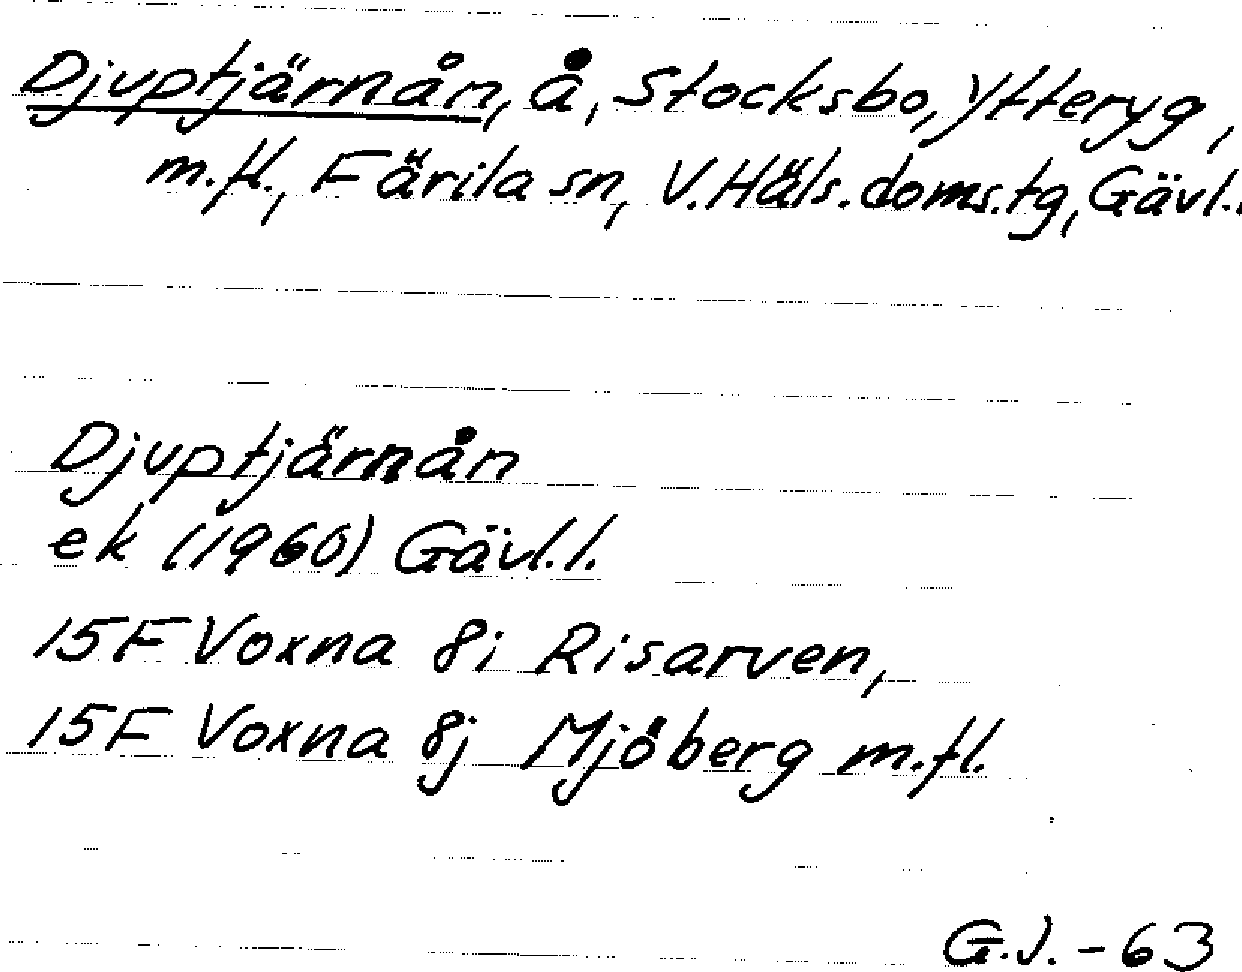 Djuptjärnån, å, Stocksbo, Ytteryg,
m.fl., Färila sn, V. Häls. doms.tg, Gävl.l.
Djuptjärnån
ek (1960) Gävl.l.
15F Voxna 8i Risarven,
15F Voxna 8j Mjöberg m.fl.
G.J. - 63